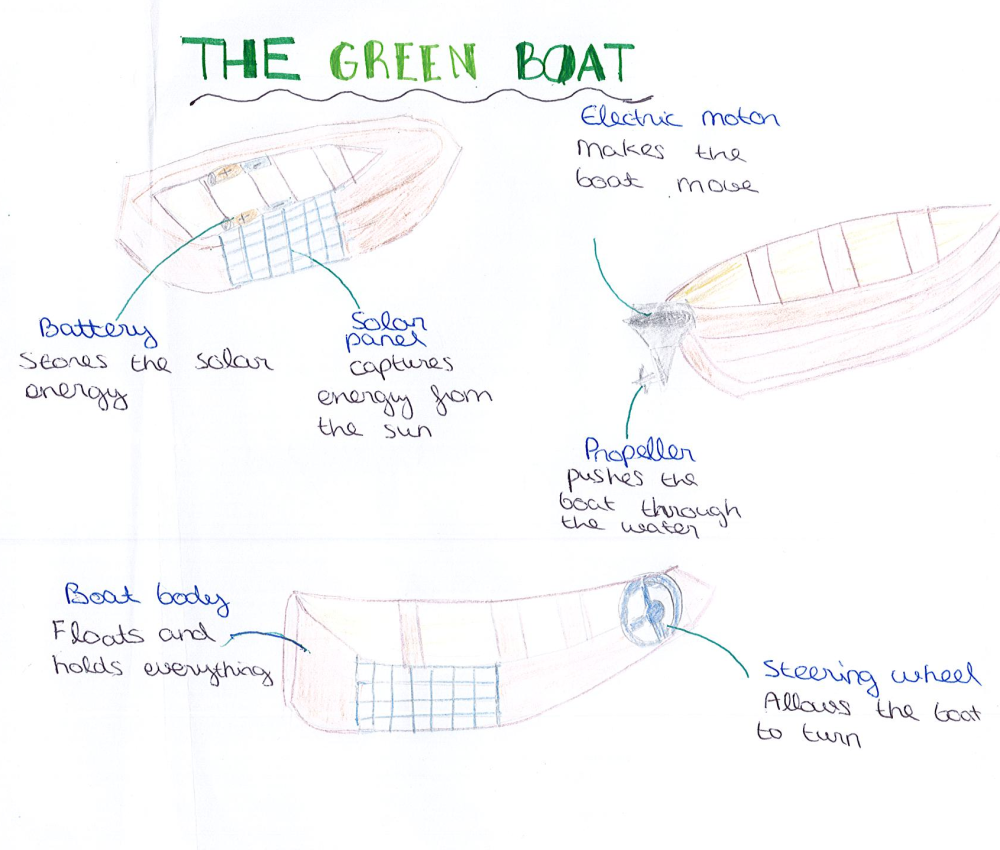 THE GREEN BOAT
Electric motor
makes the
boat move
Battery
Stores the solar
energy
Solar
panel
captures
energy from
the sun
Propeller
pushes the
boat through
the water
Boat body
Floats and
holds everything
Steering wheel
Allows the boat
to turn
+
-
+
-